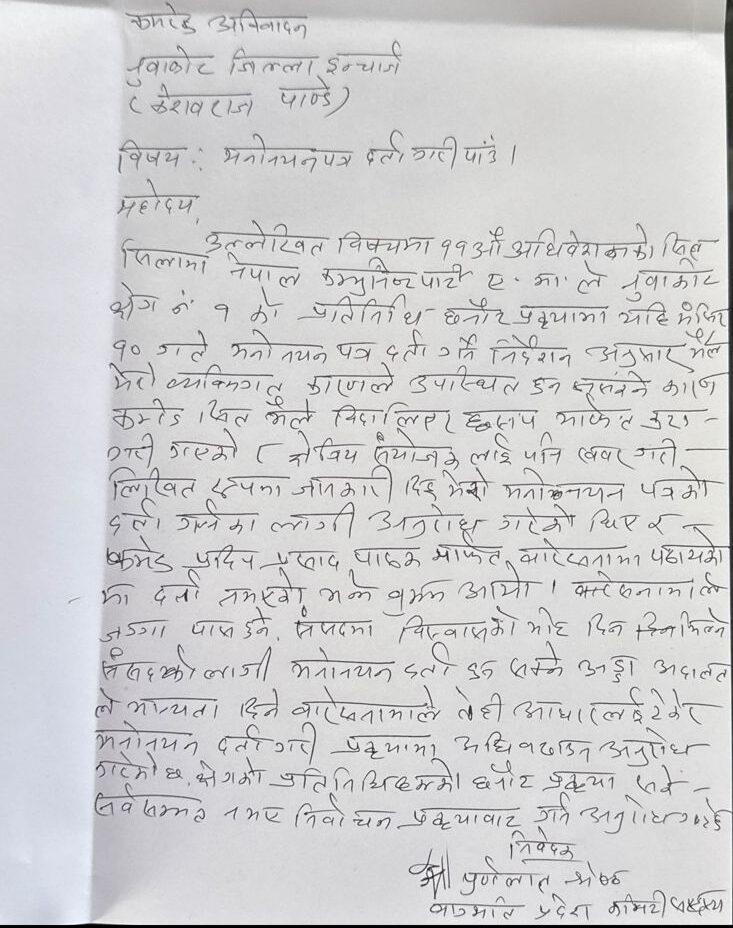 कमरेड अभिवादन
नुवाकोट जिल्ला इन्चार्ज
(केशवराज पाण्डे)
विषय : मनोनयनपत्र दर्ता गरी पाउँ ।
महोदय,
उल्लेखित विषयमा ११औं अधिवेशनको
जिल्लामा नेपाल कम्युनिष्ट पार्टी ए.मा.ले नुवाकोट
क्षेत्र नं १ को प्रतिनिधि छनौट प्रकृयामा यहि मंसिर
१० गते मनोनयन पत्र दर्ता गर्ने निर्देशन अनुसार मैले
मेरो व्यक्तिगत कारणले उपस्थित हुन नसक्ने कारण
कमरेड मैले बिदा लिएर मार्फत कुरा
गरी गएको र क्षेत्रिय संयोजक लाई पनि खबर गरी
लिखित रूपमा जानकारी दिइ मेरो मनोनयन पत्रको
दर्ता गर्नका लागी अनुरोध गरेको थिए र
कमरेड प्रदिप प्रसाद पाठक मार्फत वारेसनामा पठाएको
मा दर्ता नभएको भन्ने बुझ्न आयो । वारेसनामाले
जग्गा पास हुने, संसदमा विश्वासको मत दिन मिल्ने
संसदको लागी मनोनयन दर्ता हुन सक्ने अड्डा अदालत
ले मान्यता दिने वारेसनामाले तेही आधारलाई टेकेर
मनोनयन दर्ता गरी प्रकृयामा अनुरोध
गरेको छु, क्षेत्रको प्रतिनिधिहरूको छनौट प्रकृया
सर्वसम्मत नभए निर्वाचन प्रकृयाबाट गर्न अनुरोध गर्दछु
निवेदक
पुर्णलाल श्रेष्ठ
बागमति प्रदेश कमिटी सदस्य